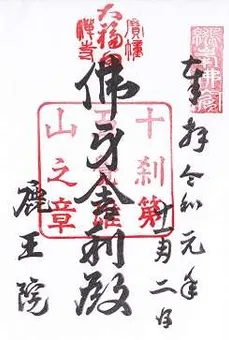 奉拝 令和元年
十一月二日
大福田
寶幢
禅寺
佛牙舎利殿
十刹第
五覚雄
山之章
鹿王院